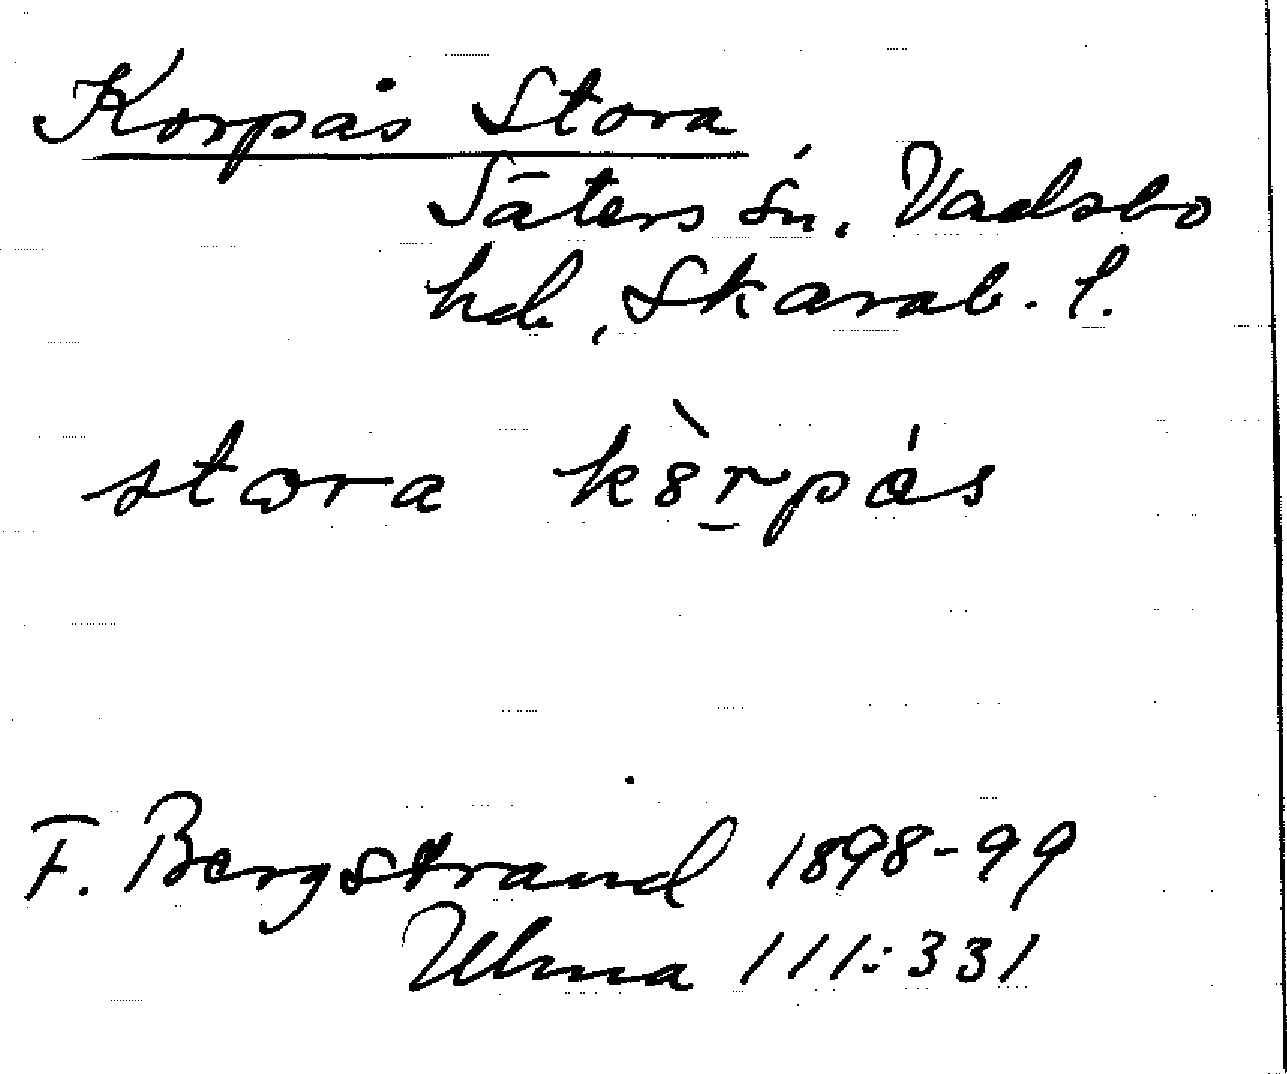 Korpås Stora
Säters sn. Vadsbo
hd., Skarab. l.
stora kȍrpás
F. Bergstrand 1898-99
Ulma 111:331